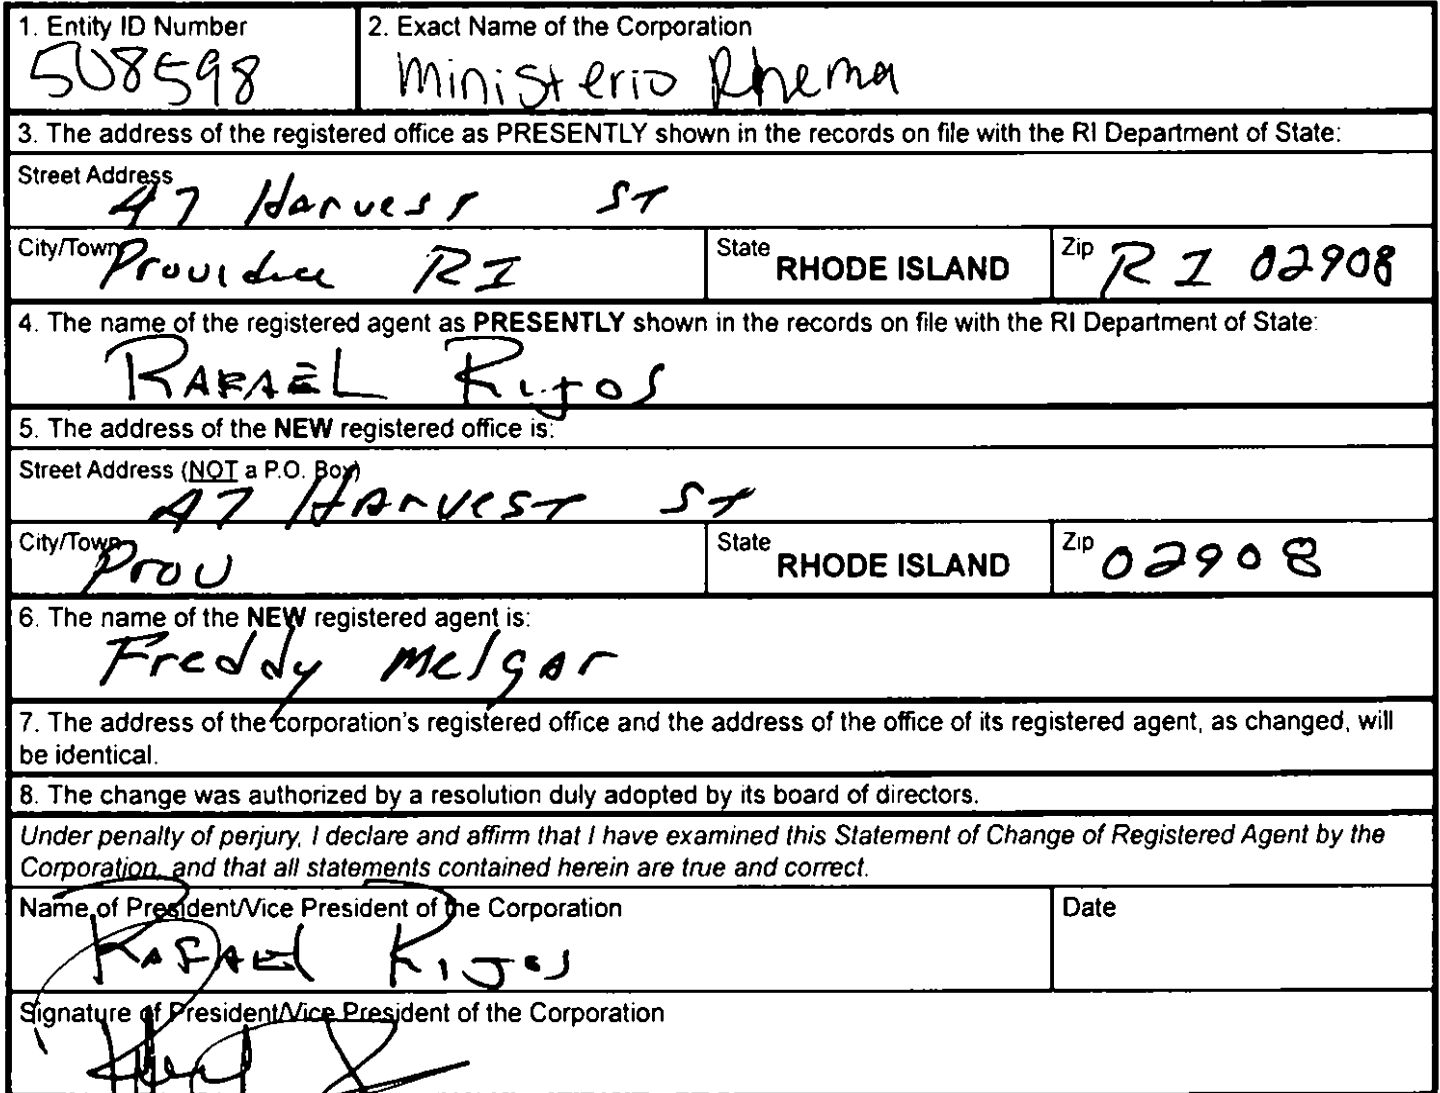 1. Entity ID Number
508598
2. Exact Name of the Corporation
Ministerio Rhema
3. The address of the registered office as PRESENTLY shown in the records on file with the RI Department of State:
Street Address
47 Harvest ST
City/Town
Providence RI
State
RHODE ISLAND
Zip
RI 02908
4. The name of the registered agent as PRESENTLY shown in the records on file with the RI Department of State:
RAFAEL Rijos
5. The address of the NEW registered office is:
Street Address (NOT a P.O. Box)
47 HArvest ST
City/Town
Prov
State
RHODE ISLAND
Zip
02908
6. The name of the NEW registered agent is:
Freddy Melgar
7. The address of the corporation's registered office and the address of the office of its registered agent, as changed, will
be identical.
8. The change was authorized by a resolution duly adopted by its board of directors.
Under penalty of perjury, I declare and affirm that I have examined this Statement of Change of Registered Agent by the
Corporation, and that all statements contained herein are true and correct.
Name of President/Vice President of the Corporation
RAFAEl RiJos
Date
Signature of President/Vice President of the Corporation